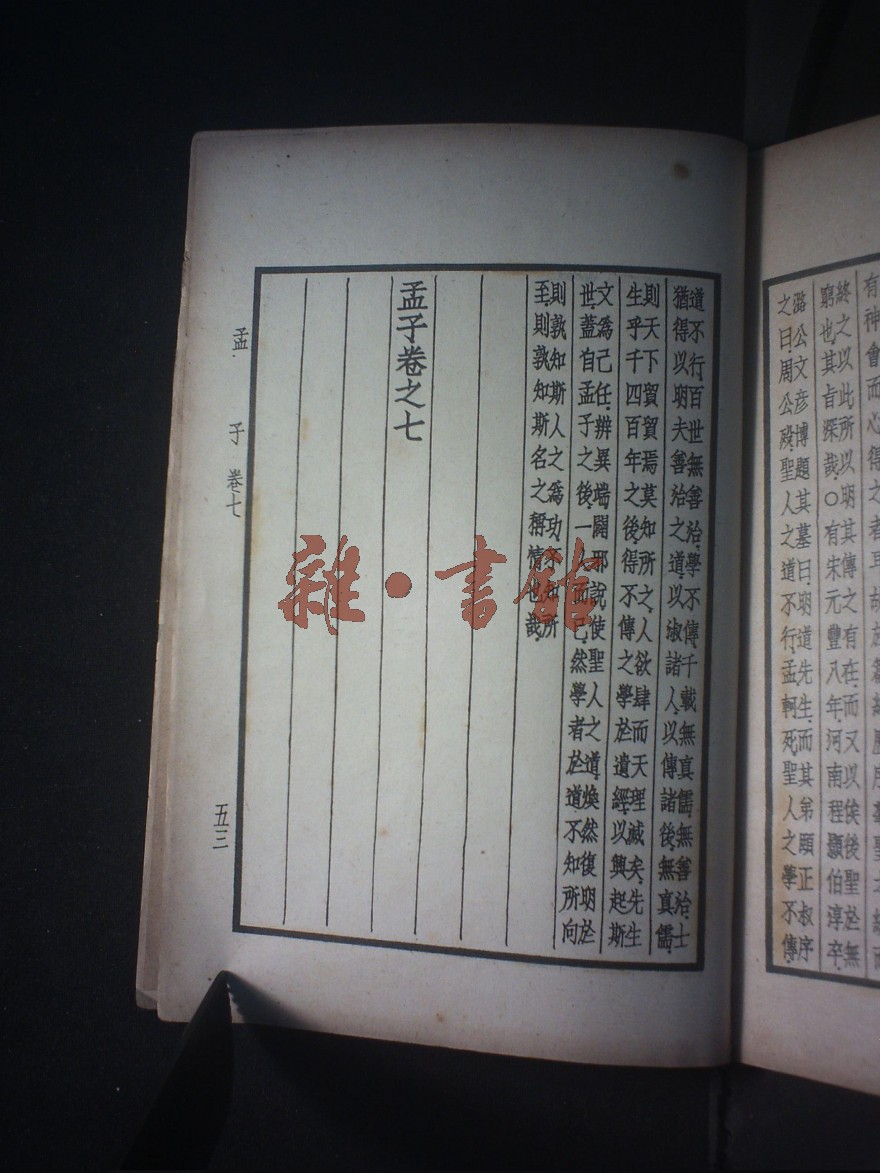 有神會而心得之者耳故於篇終歷序羣聖之統而
終之以此所以明其傳之有在而又以俟後聖於無
窮也其旨深哉○有宋元豐八年河南程顥伯淳卒
潞公文彥博題其墓曰明道先生而其弟頤正叔序
之曰周公歿聖人之道不行孟軻死聖人之學不傳
道不行百世無善治學不傳千載無真儒無善治士
猶得以明夫善治之道以淑諸人以傳諸後無真儒
則天下貿貿焉莫知所之人欲肆而天理滅矣先生
生乎千四百年之後得不傳之學於遺經以興起斯
文爲己任辨異端闢邪說使聖人之道煥然復明於
世蓋自孟子之後一人而已然學者於道不知所向
則孰知斯人之爲功不知所
至則孰知斯名之稱情也哉
孟子卷之七
孟子 卷七
五三
雜·書館